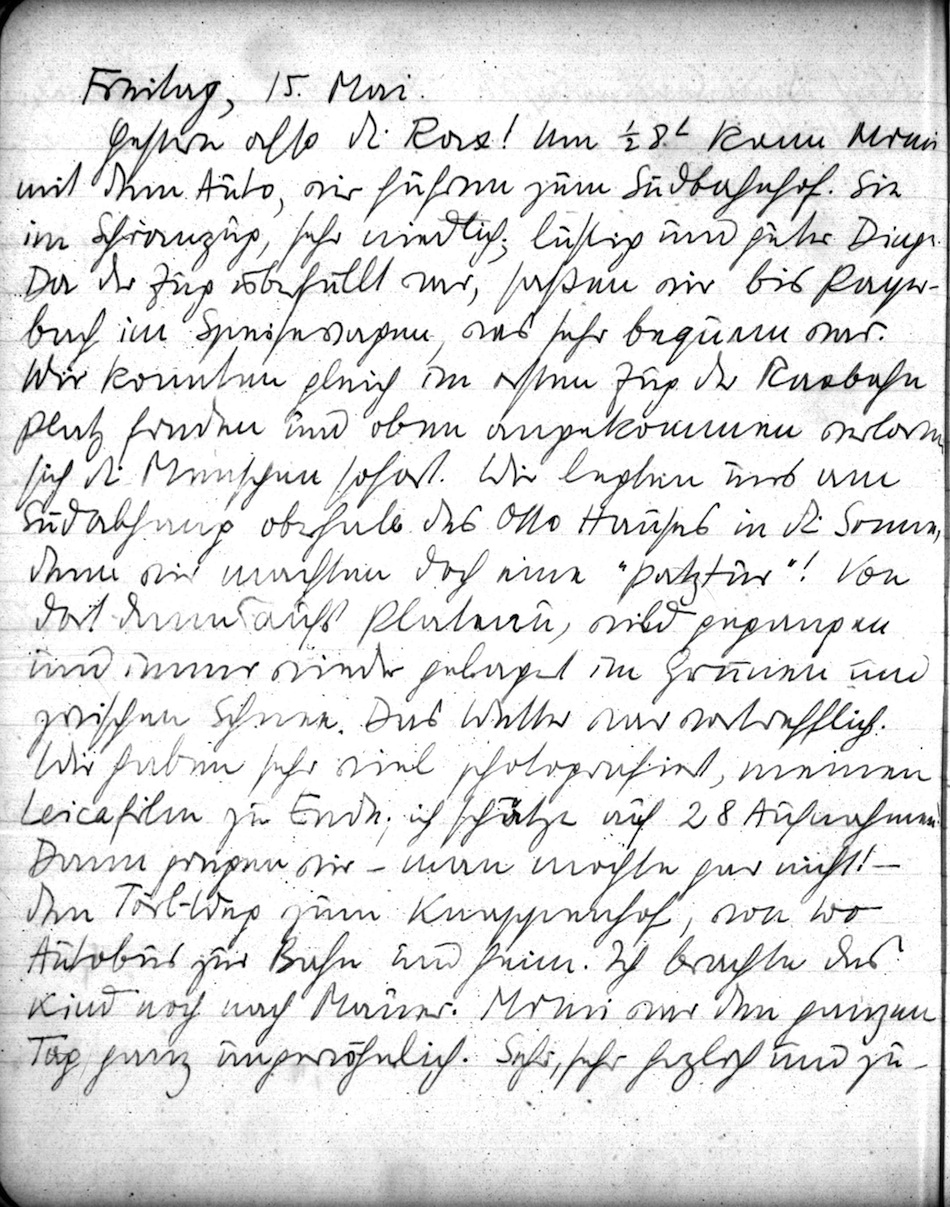 Freitag, 15. Mai.
Gestern also die Rax! Um ½ 8h kam Mimi
mit dem Auto, wir fuhren zum Südbahnhof. Sie
im Schianzug, sehr niedlich, lustig und guter Dinge.
Da der Zug überfüllt war, saßen wir bis Payer-
bach im Speisewagen, was sehr bequem war.
Wir konnten gleich im ersten Zug der Raxbahn
Platz finden und oben angekommen verloren
sich die Menschen sofort. Wir legten uns am
Südabhang oberhalb des Otto Hauses in die Sonne,
denn wir machten doch eine "Patztur"! Von
dort dann aufs Plateau, wild gegangen
und immer wieder gelagert im Grünen und
zwischen Schnee. Das Wetter war vortrefflich.
Wir haben sehr viel photographiert, meinen
Leicafilm zu Ende, ich schätze auf 28 Aufnahmen.
Dann gingen wir – man mochte gar nicht! –
den Törl-Weg zum Knappenhof, von wo
Autobus zur Bahn und heim. Ich brachte das
Kind noch nach Mauer. Mimi war den ganzen
Tag ganz ungewöhnlich. Sehr, sehr herzlich und zu-